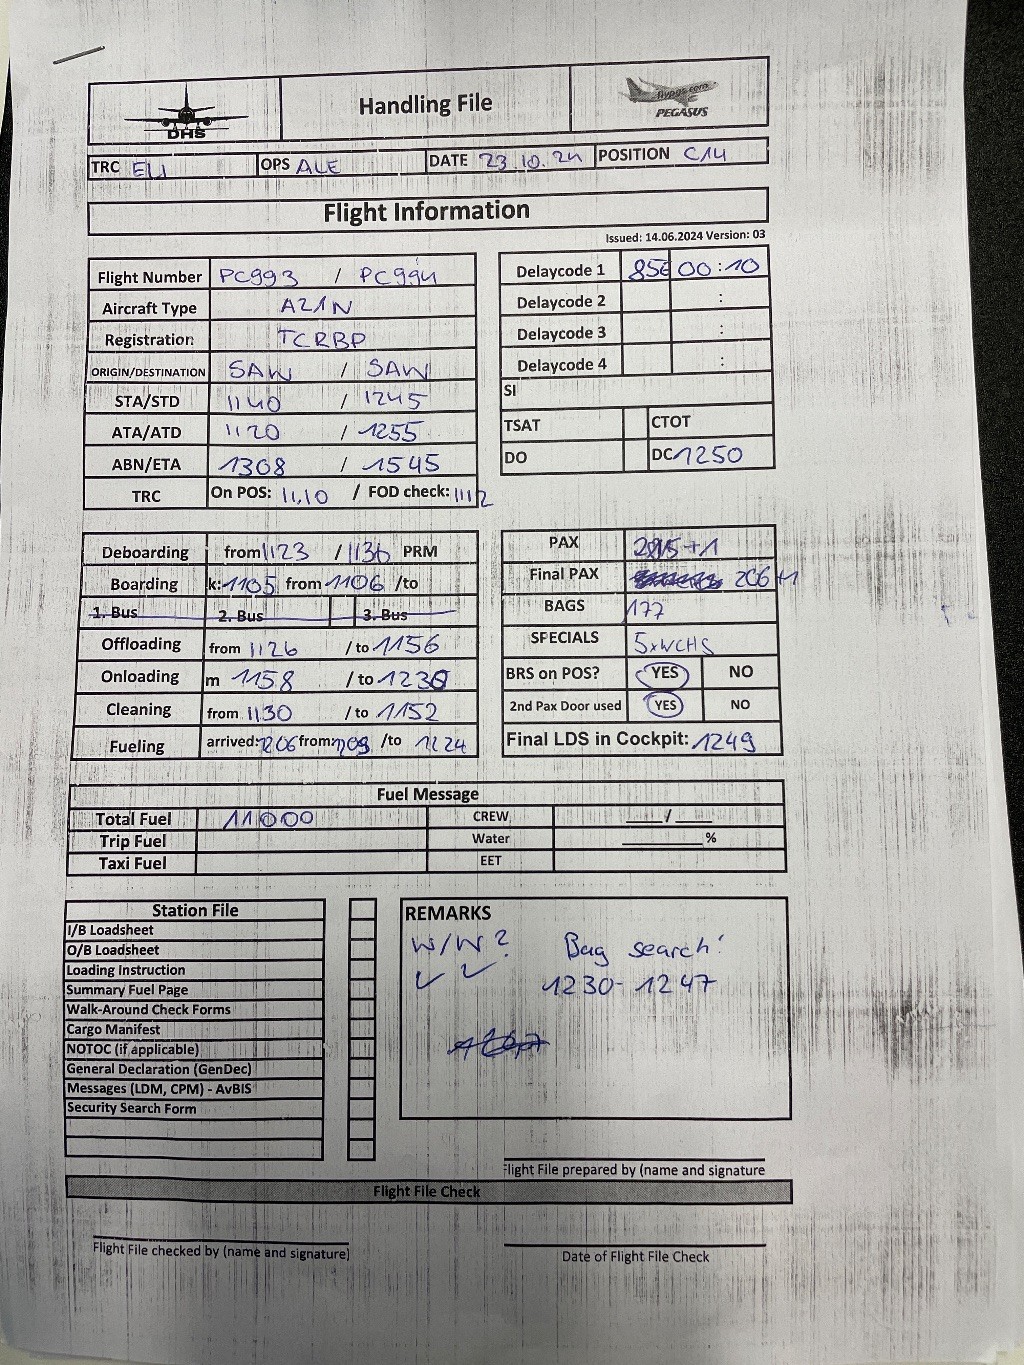 DHS
Handling File
flypgs.com
PEGASUS
TRC ELI OPS ALE DATE 23.10.24 POSITION C14
Flight Information
Issued: 14.06.2024 Version: 03
Flight Number PC993 / PC994
Aircraft Type A21N
Registration TCRBP
ORIGIN/DESTINATION SAW / SAW
STA/STD 1140 / 1245
ATA/ATD 1120 / 1255
ABN/ETA 1308 / 1545
TRC On POS: 11.10 / FOD check: 1112
Delaycode 1 85E 00:10
Delaycode 2 :
Delaycode 3 :
Delaycode 4 :
SI
TSAT CTOT
DO DC 1250
Deboarding from 1123 / 1136 PRM
Boarding k: 1105 from 1106 /to
1. Bus 2. Bus 3. Bus
Offloading from 1126 /to 1156
Onloading m 1158 /to 1230
Cleaning from 1130 /to 1152
Fueling arrived: 1206 from 1209 /to 1224
PAX +1
Final PAX 206+1
BAGS 177
SPECIALS 5xWCHS
BRS on POS? YES NO
2nd Pax Door used YES NO
Final LDS in Cockpit: 1249
Fuel Message
Total Fuel 11000 CREW ___/___
Trip Fuel Water ________%
Taxi Fuel EET
Station File
I/B Loadsheet
O/B Loadsheet
Loading Instruction
Summary Fuel Page
Walk-Around Check Forms
Cargo Manifest
NOTOC (if applicable)
General Declaration (GenDec)
Messages (LDM, CPM) - AvBIS
Security Search Form
REMARKS
W/W? Bag search!
✓ ✓ 1230 - 1247
Flight File prepared by (name and signature
Flight File Check
Flight File checked by (name and signature)
Date of Flight File Check